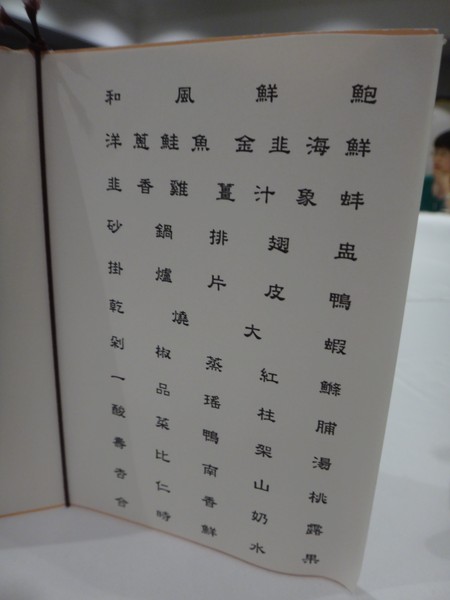 和風鮮鮑
洋蔥鮭魚 金韭海鮮
韭香雞 薑汁象蚌
砂鍋排翅盅
掛爐片皮鴨
乾燒大蝦
剁椒蒸紅鰷
一品瑤柱脯
酸菜鴨架湯
壽比南山桃
杏仁香奶露
合時鮮水果